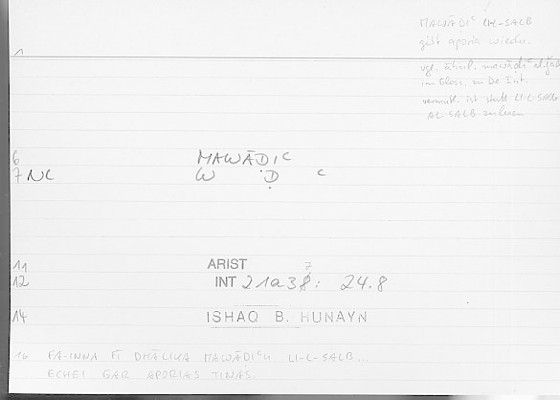 MAWĀḌIᶜ LI-L-SALB
gibt aporia wieder.
vgl. ähnl. mawāḍiᶜ
im Gloss. zu De Int.
vermutl. ist statt LI-L-SALB
AL-SALB zu lesen
1
6 MAWĀḌIᶜ
7 NC W Ḍ ᶜ
11 ARIST 7
12 INT 21a38: 24.8
14 ISHAQ B. HUNAYN
16 FA-INNA FĪ DHĀLIKA MAWĀḌIᶜU LI-L-SALB...
ECHEI GAR APORIAS TINAS.